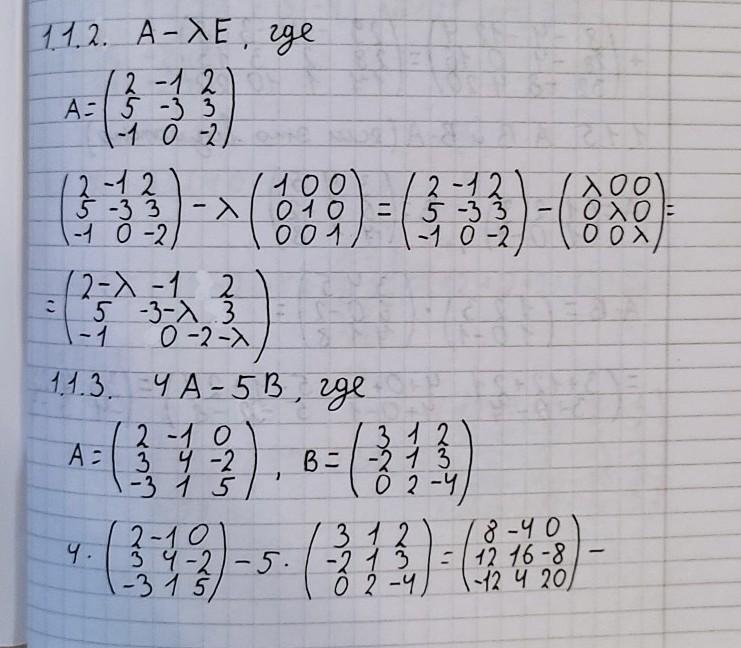 1.1.2. A - λE, где
A = (2 -1 2
5 -3 3
-1 0 -2)
(2 -1 2
5 -3 3
-1 0 -2) - λ (1 0 0
0 1 0
0 0 1) = (2 -1 2
5 -3 3
-1 0 -2) - (λ 0 0
0 λ 0
0 0 λ) =
= (2-λ -1 2
5 -3-λ 3
-1 0 -2-λ)
1.1.3. 4A - 5B, где
A = (2 -1 0
3 4 -2
-3 1 5), B = (3 1 2
-2 1 3
0 2 -4)
4 · (2 -1 0
3 4 -2
-3 1 5) - 5 · (3 1 2
-2 1 3
0 2 -4) = (8 -4 0
12 16 -8
-12 4 20) -